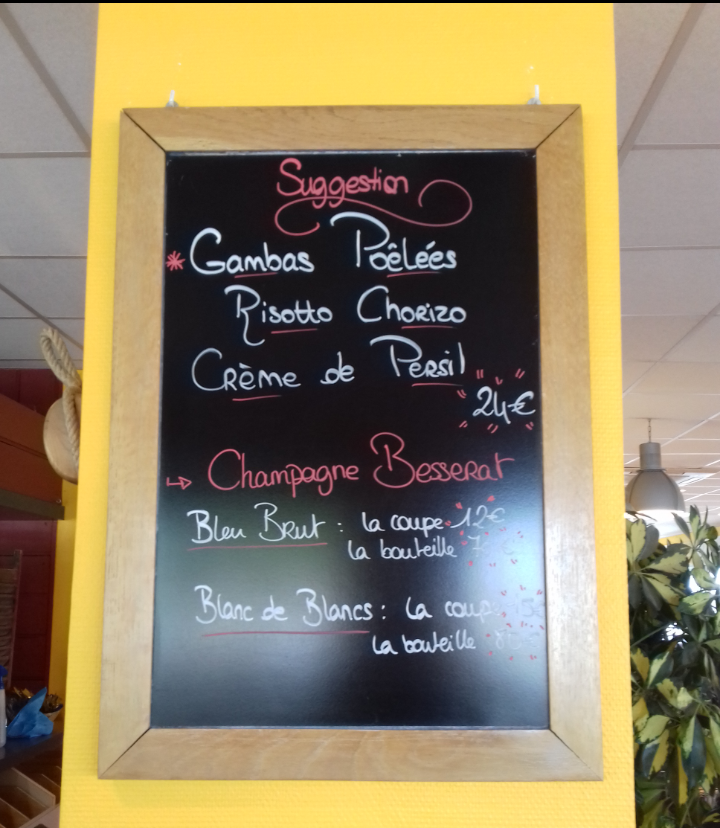 Suggestion
* Gambas Poêlées
Risotto Chorizo
Crème de Persil
24€
↳ Champagne Besserat
Bleu Brut : la coupe 12€
la bouteille
Blanc de Blancs : la coupe
la bouteille